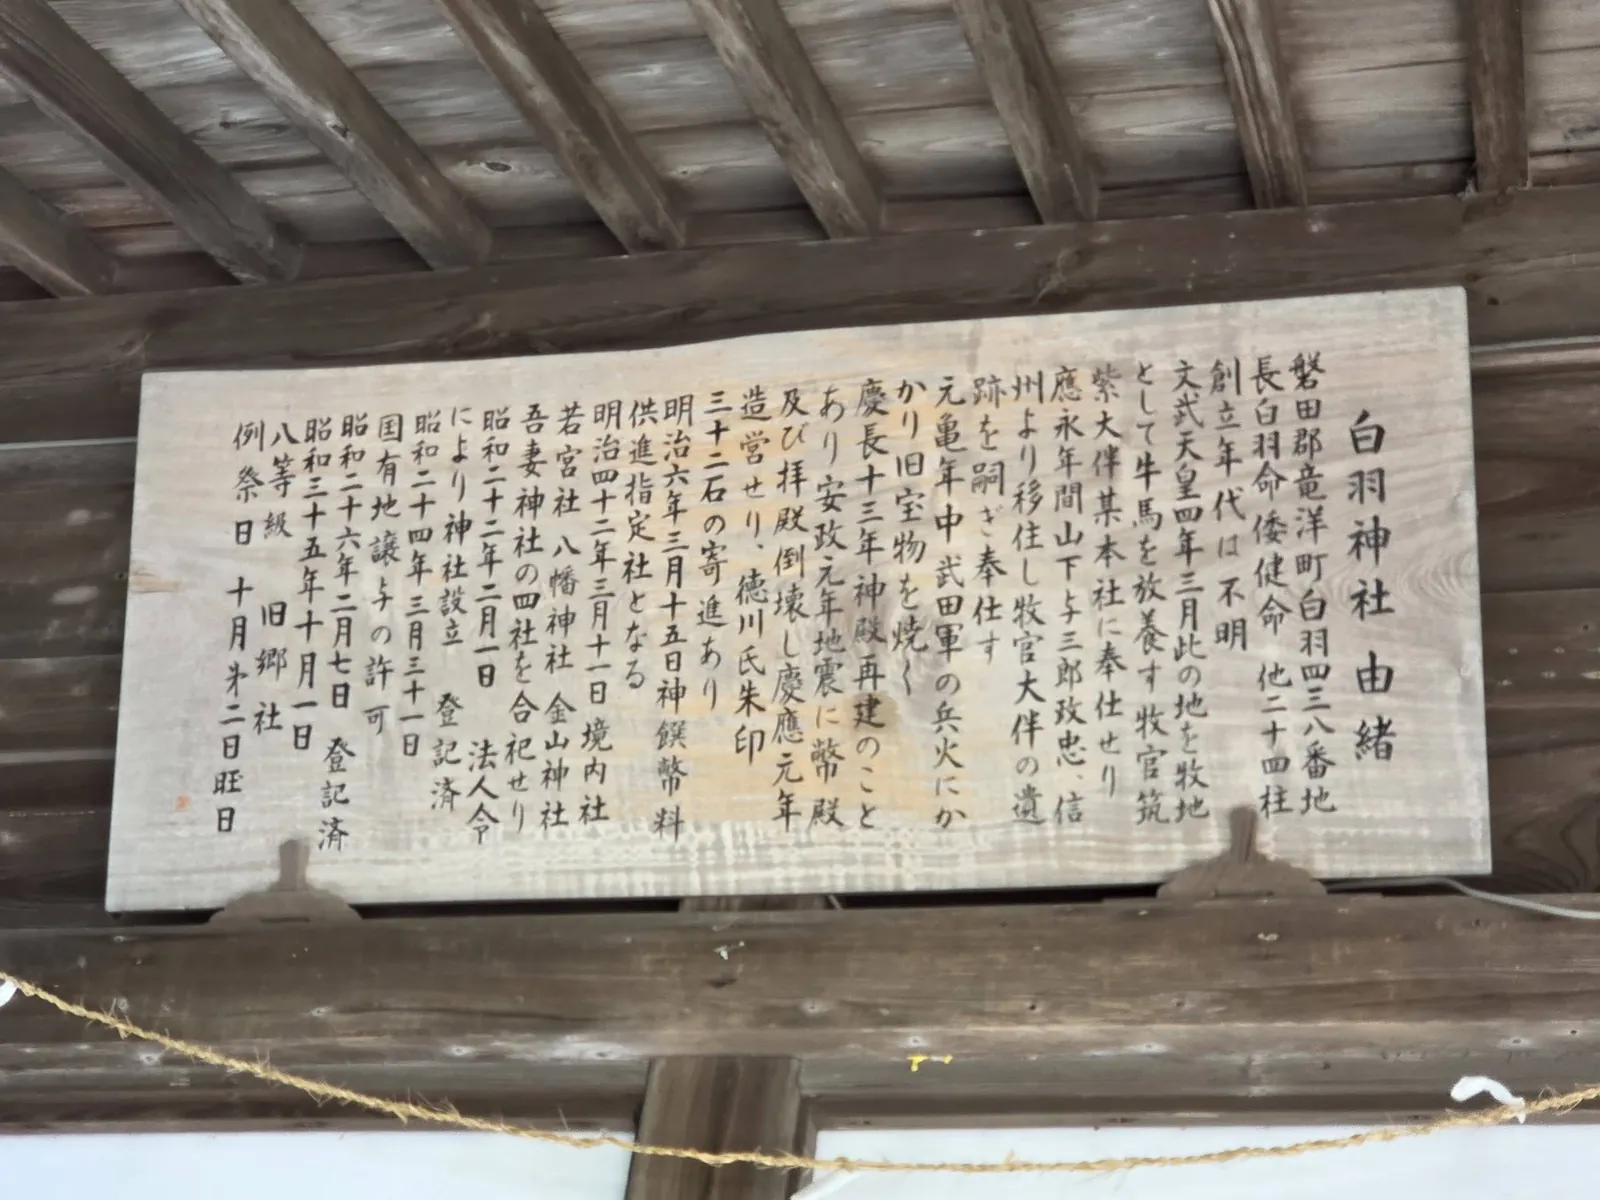 白羽神社由緒
磐田郡竜洋町白羽四三八番地
長白羽命倭健命 他二十四柱
創立年代は不明
文武天皇四年三月此の地を牧地
として牛馬を放養す牧官筑
紫大伴某本社に奉仕せり
應永年間山下与三郎政忠、信
州より移住し牧官大伴の遺
跡を嗣ぎ奉仕す
元亀年中武田軍の兵火にか
かり旧宝物を焼く
慶長十三年神殿再建のこと
あり安政元年地震に幣殿
及び拝殿倒壊し慶應元年
造営せり、徳川氏朱印
三十二石の寄進あり
明治六年三月十五日神饌幣料
供進指定社となる
明治四十二年三月十一日境内社
若宮社 八幡神社 金山神社
吾妻神社の四社を合祀せり
昭和二十二年二月一日 法人令
により神社設立 登記済
昭和二十四年三月三十一日
国有地譲与の許可
昭和二十六年二月七日 登記済
昭和三十五年十月一日
八等級 旧郷社
例祭日 十月㐧二日旺日